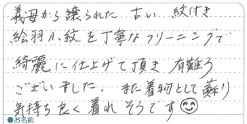 義母から譲られた 古い 紋付き
絵羽小紋を丁寧なクリーニングで
綺麗に仕上げて頂き 有難う
ございました。また着物として蘇り
気持ち良く着れそうです
●お名前